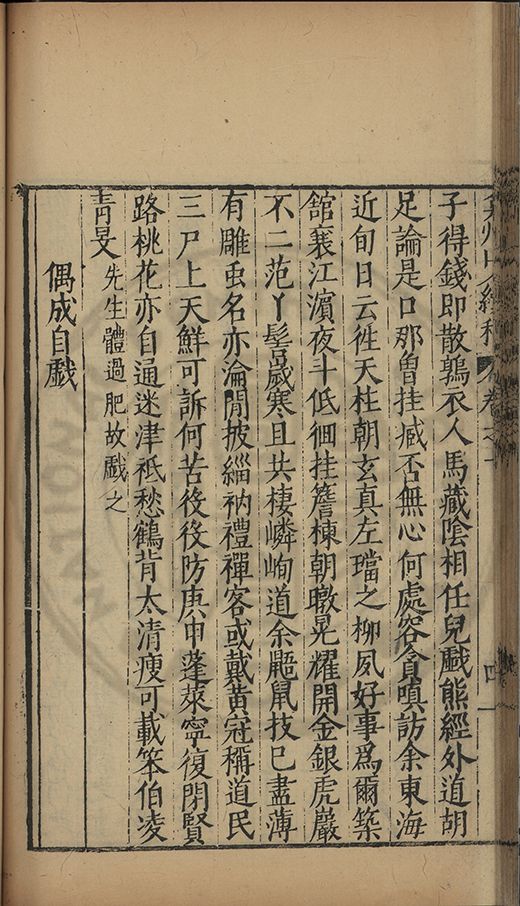 弇州山人續稿 卷之 四
子得錢即散鶉衣人馬藏陰相任兒戲熊經外道胡
足論是口那曾挂臧否無心何處容貪嗔訪余東海
近旬日云徃天柱朝玄真左璫之柳夙好事爲爾築
舘襄江濵夜斗低徊挂簷棟朝暾晃耀開金銀虎巖
不二范丫髻歲寒且共棲嶙峋道余鼯鼠技已盡薄
有雕虫名亦淪閒披緇衲禮禪客或戴黃冠稱道民
三尸上天鮮可訴何苦役役防庚申蓬萊寧復閉賢
路桃花亦自通迷津祗愁鶴背太清瘦可載笨伯凌
青旻先生體過肥故戲之
偶成自戲